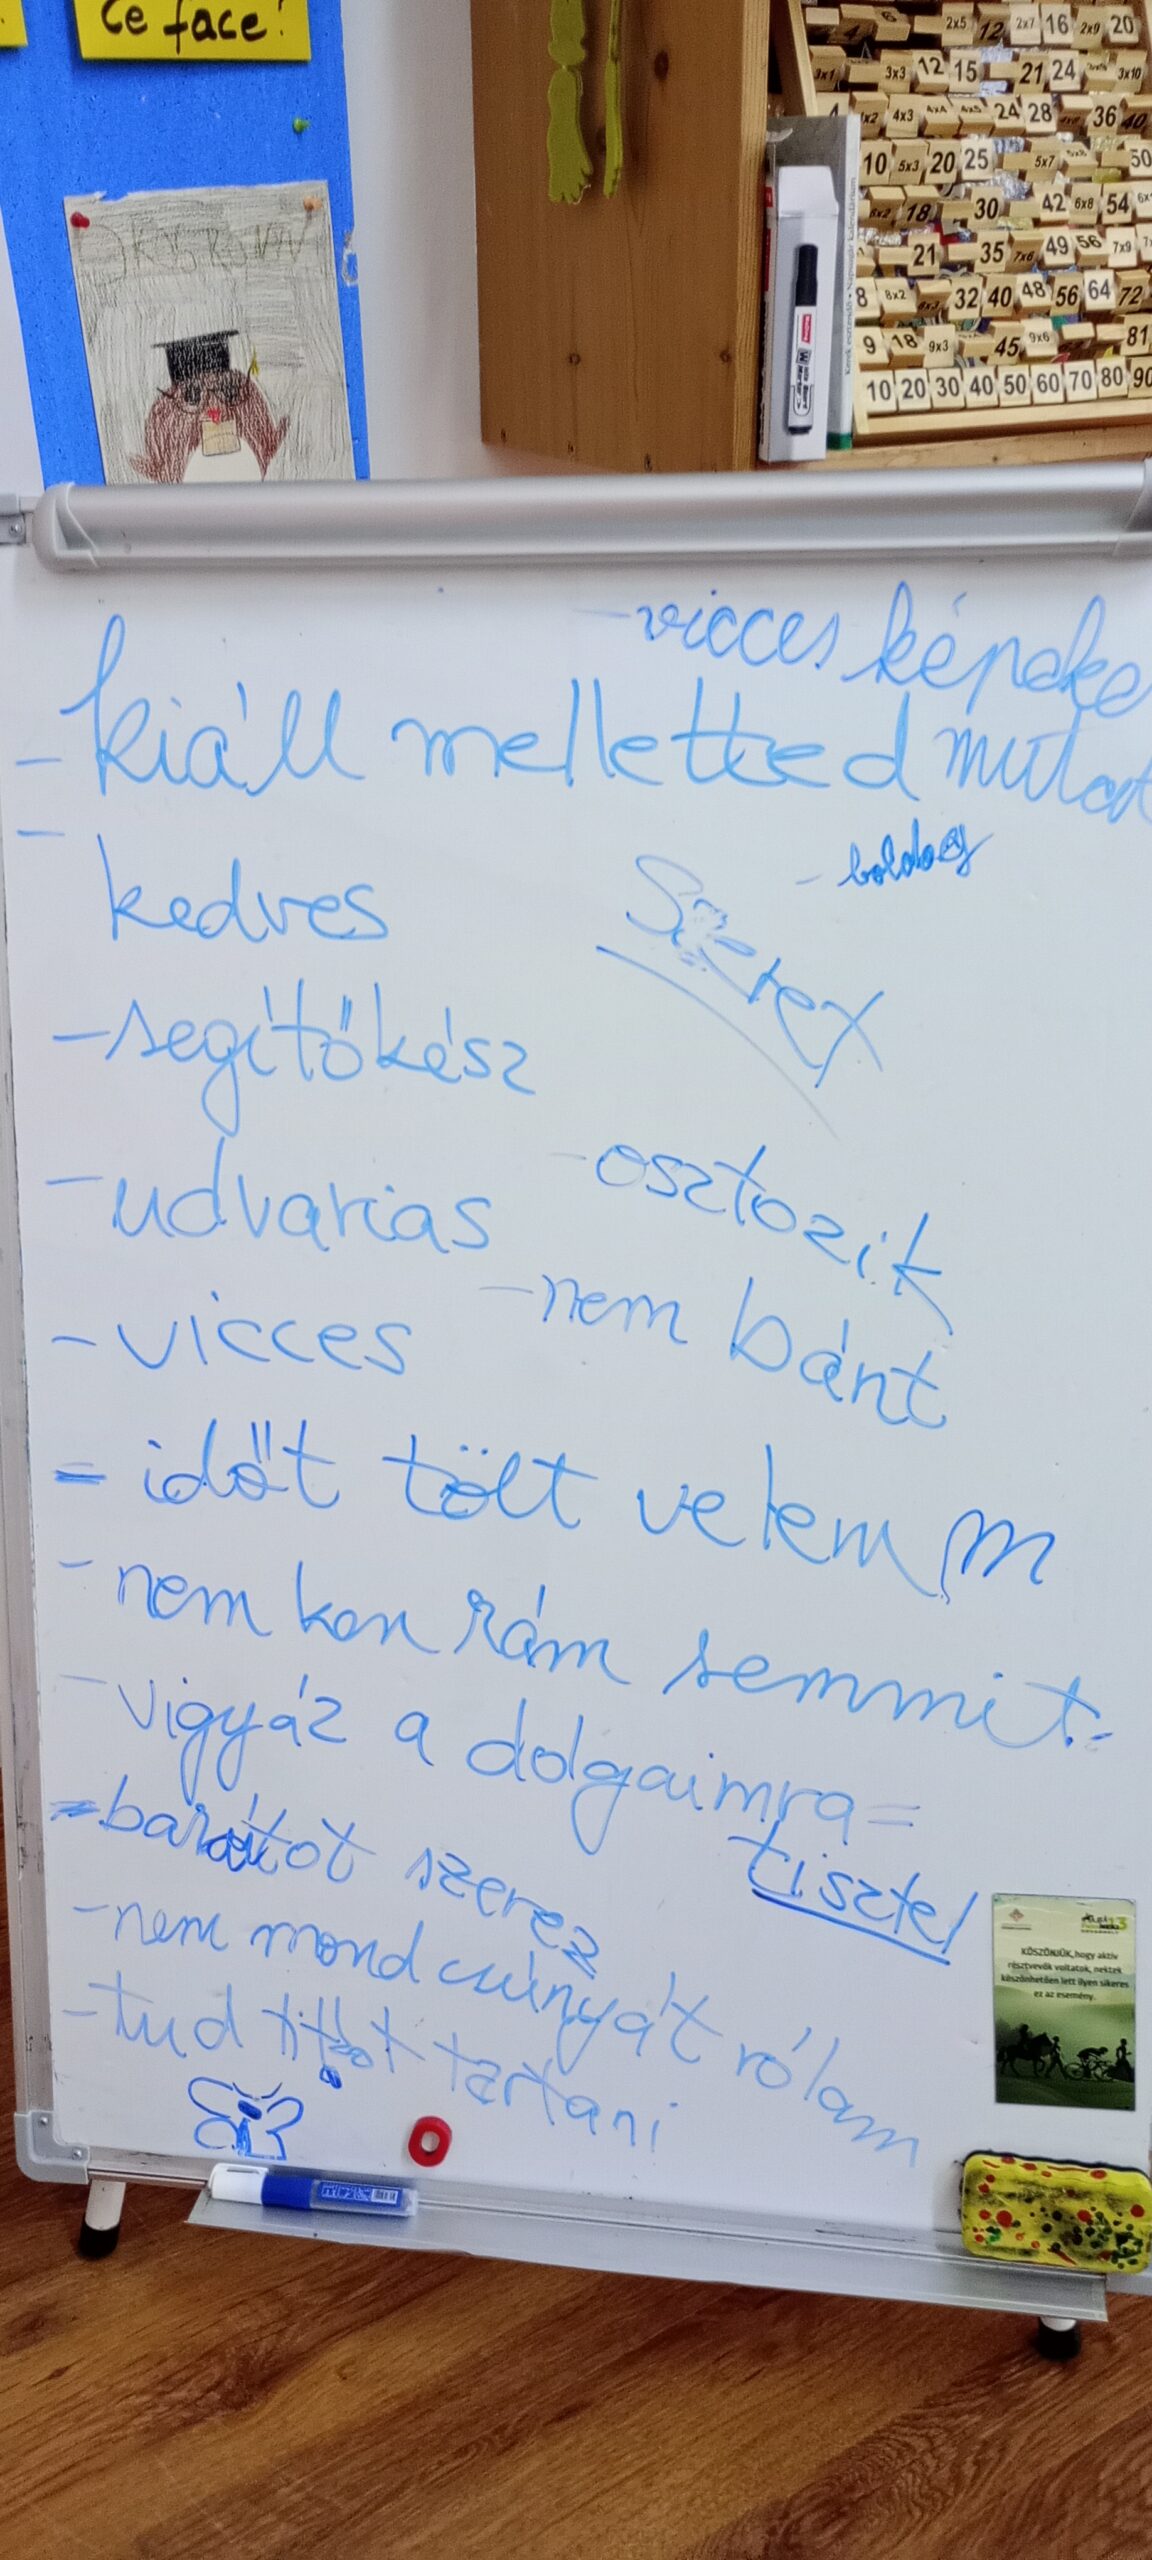 Ce face?
- vicces képeke
mutat
- kiáll melletted
- kedves
- boldog
Szerex
- segítőkész
- udvarias
- osztozik
- vicces
- nem bánt
- időt tölt velem
- nem ken rám semmit.
- vigyáz a dolgaimra =
tisztel
- barátot szerez
- nem mond csúnyát rólam
- tud titkot tartani
KÖSZÖNJÜK, hogy aktív
résztvevők voltatok, nektek
köszönhetően lett ilyen sikeres
ez az esemény.
Kerek esztendő • Napsugár kalendárium
2x5 12 2x7 16 2x9 20
3x1 3x3 12 15 21 24 3x10
4 4x2 4x3 4x4 4x5 24 28 36 40
10 5x3 20 25 5x7 5x8 50
6x2 18 30 42 6x8 54
21 35 7x6 49 56 7x9
8 8x2 8x3 32 40 48 56 64 72
9 18 9x3 45 9x6 81
10 20 30 40 50 60 70 80 90